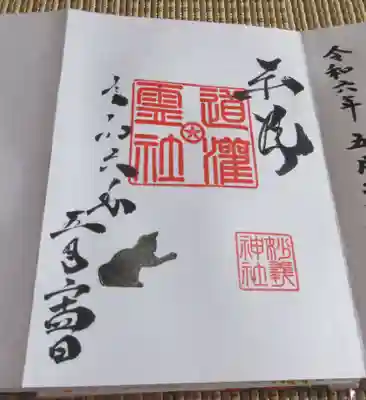 奉拝
道灌
霊社
妙義
神社
令和六年
五月十四日
令和六年 五月